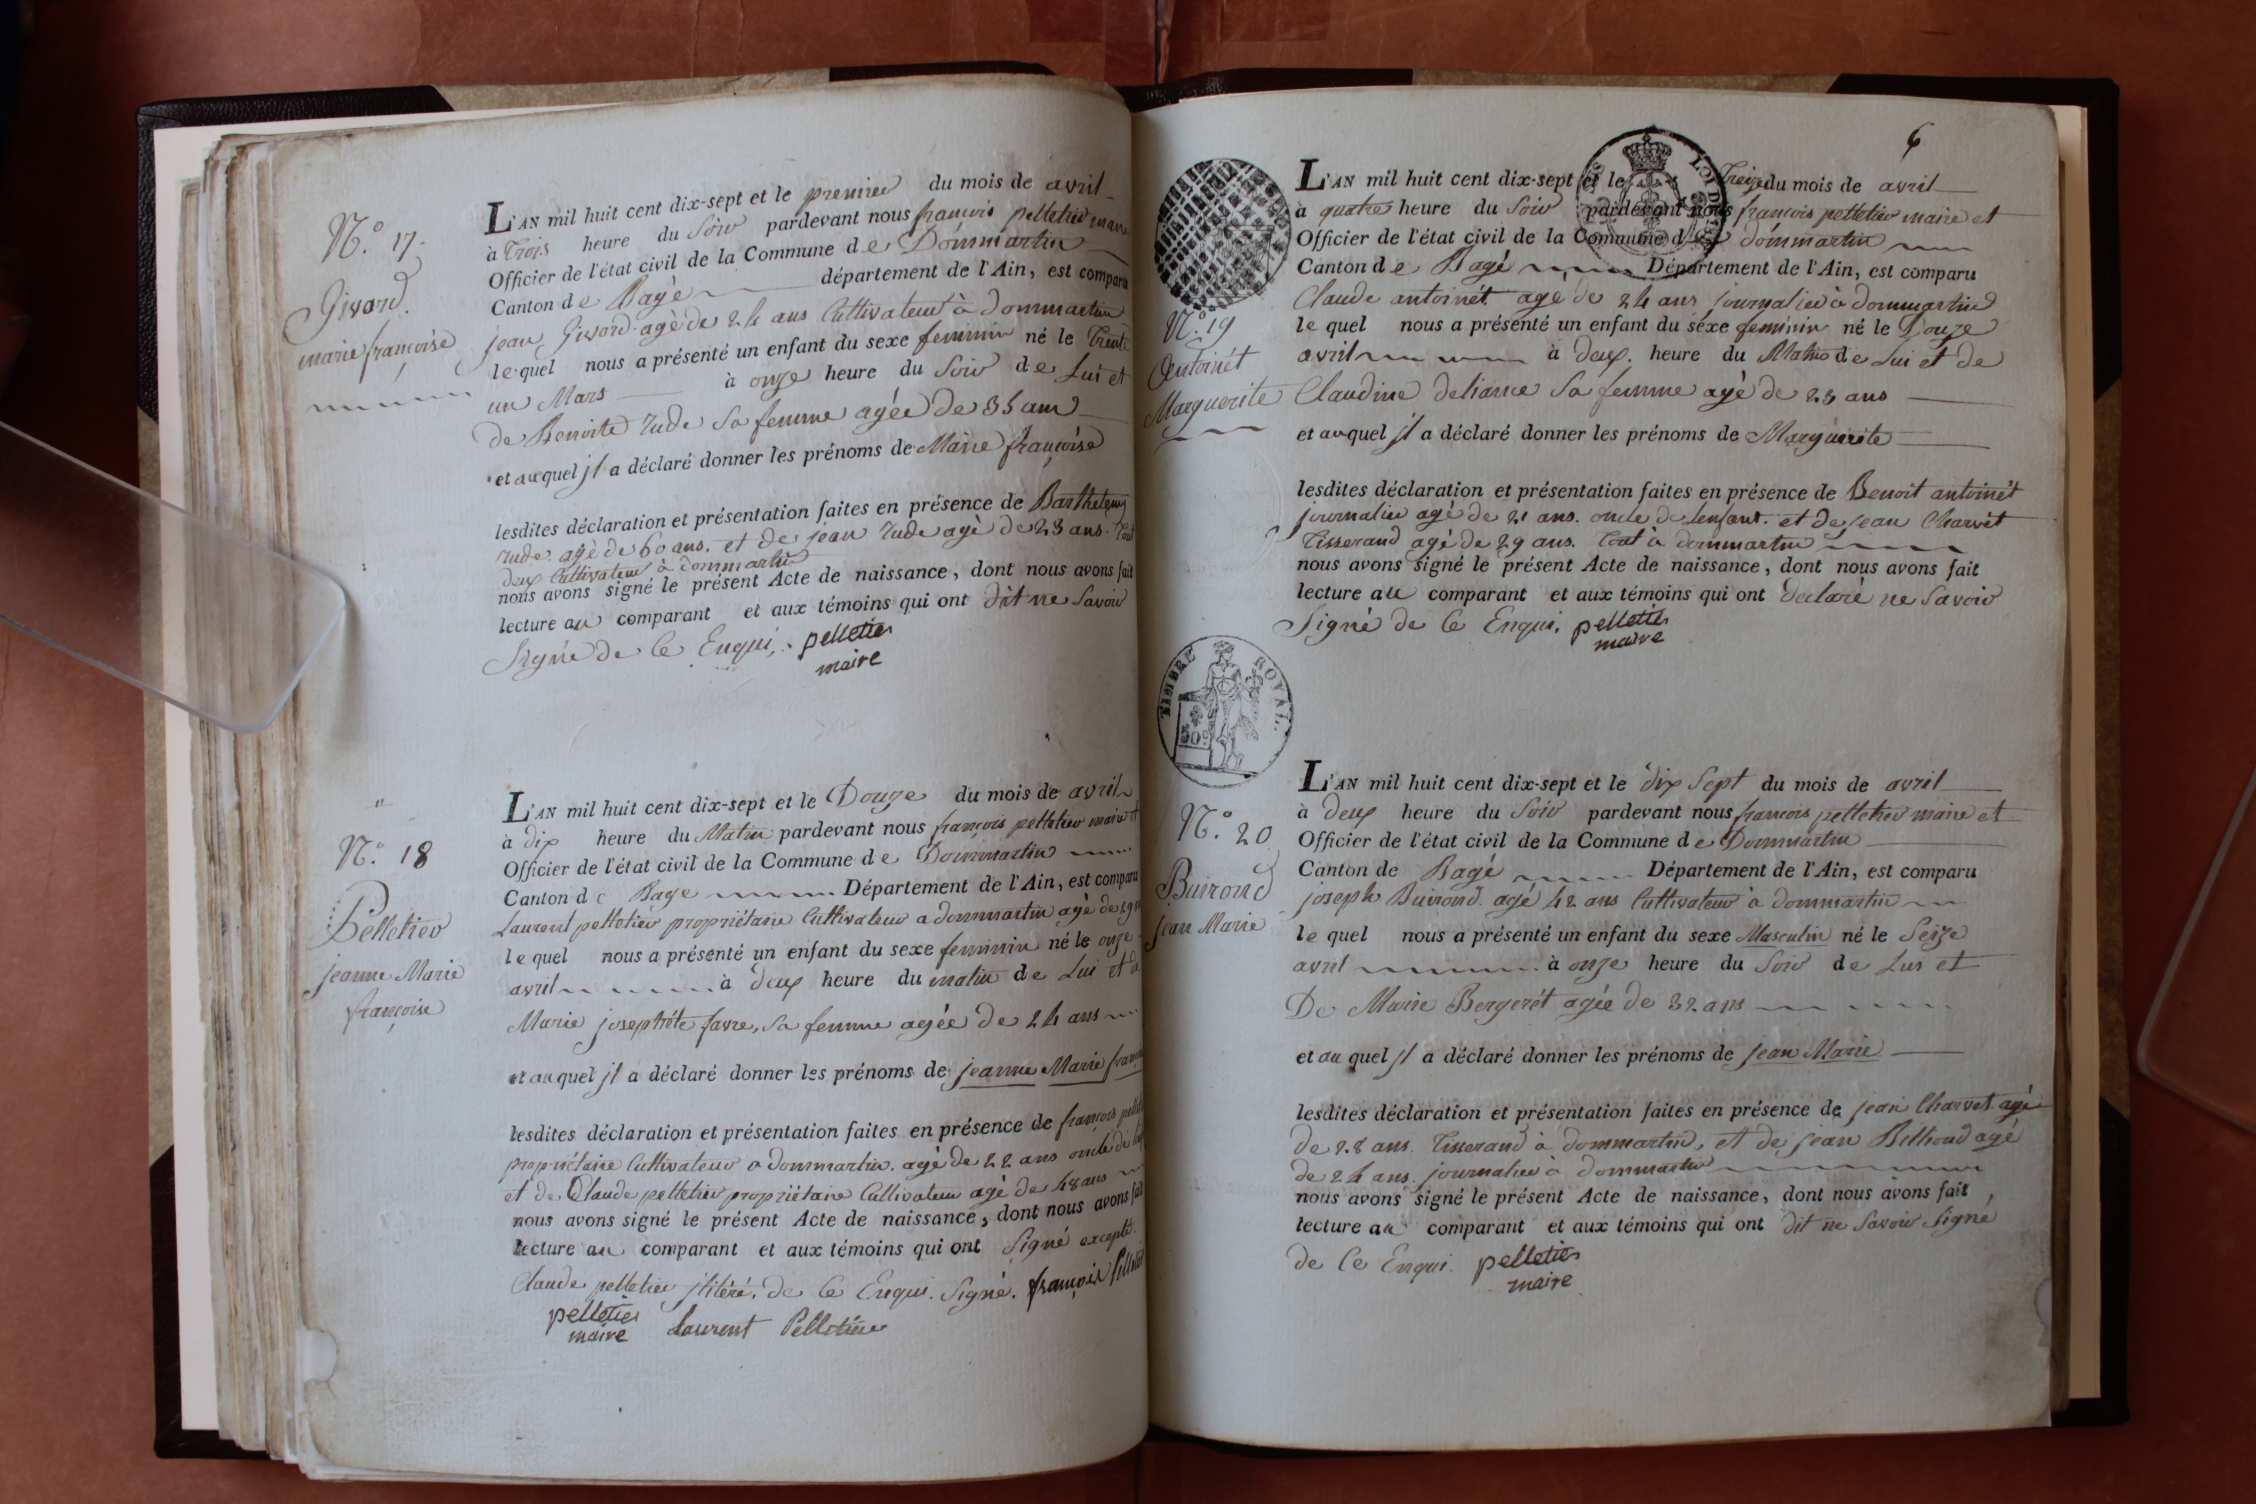 N.° 17.
Givord
marie françoise
L'AN mil huit cent dix-sept et le premier du mois de avril
à Trois heure du Soir pardevant nous françois pelletier maire
Officier de l'état civil de la Commune de Dommartin
Canton de Bagé département de l'Ain, est comparu
jean Givord agé de 24 ans Cultivateur à dommartin
lequel nous a présenté un enfant du sexe feminin né le Trente
un Mars à onze heure du Soir de Lui et
de Benoite rude Sa femme agée de 35 ans
et auquel jl a déclaré donner les prénoms de Marie françoise
lesdites déclaration et présentation faites en présence de Barthelemy
rude agé de 60 ans. et de jean rude agé de 23 ans. Tous
deux Cultivateur à dommartin
nous avons signé le présent Acte de naissance, dont nous avons fait
lecture au comparant et aux témoins qui ont dit ne Savoir
Signé de Ce Enqui. pelletier
maire
N.° 18
Pelletier
jeanne Marie
françoise
L'AN mil huit cent dix-sept et le Douze du mois de avril
à dix heure du Matin pardevant nous françois pelletier maire et
Officier de l'état civil de la Commune de Dommartin
Canton de Bage Département de l'Ain, est comparu
Laurent pelletier propriétaire Cultivateur a dommartin agé de 29
lequel nous a présenté un enfant du sexe feminin né le onze
avril à deux heure du matin de Lui et de
Marie josephte favre, sa femme agée de 24 ans
et auquel jl a déclaré donner les prénoms de jeanne Marie
lesdites déclaration et présentation faites en présence de françois
propriétaire Cultivateur a dommartin. agé de 22 ans oncle de
et de Claude pelletier propriétaire Cultivateur agé de 48 ans
nous avons signé le présent Acte de naissance, dont nous avons fait
lecture au comparant et aux témoins qui ont Signé excepté
Claude pelletier jlitéré, de Ce Enqui. Signé. françois Pelletier
pelletier
maire Laurent Pelletier
6
LOI D
L'AN mil huit cent dix-sept et le Treize du mois de avril
à quatre heure du Soir pardevant nous françois pelletier maire et
Officier de l'état civil de la Commune de dommartin
Canton de Bagé Département de l'Ain, est comparu
Claude antoinét agé de 24 ans journalier à dommartin
le quel nous a présenté un enfant du séxe feminin né le Douze
avril à deux. heure du Matin de Lui et de
Claudine deliance Sa femme agé de 23 ans
et auquel jl a déclaré donner les prénoms de Marguerite
lesdites déclaration et présentation faites en présence de Benoit antoinét
journalier agé de 21 ans. oncle de Lenfant. et de jean Charvét
Tisserand agé de 29 ans. Tout à dommartin
nous avons signé le présent Acte de naissance, dont nous avons fait
lecture au comparant et aux témoins qui ont declaré ne Savoir
Signé de Ce Enqui. pelletier
maire
N.° 19
Antoinét
Marguerite
TIMBRE ROYAL.
50c
N.° 20
Buirond
jean Marie
L'AN mil huit cent dix-sept et le dix Sept du mois de avril
à deux heure du Soir pardevant nous françois pelletier maire et
Officier de l'état civil de la Commune de Dommartin
Canton de Bagé Département de l'Ain, est comparu
joseph Buirond agé 42 ans Cultivateur à dommartin
le quel nous a présenté un enfant du sexe Masculin né le Seize
avril à onze heure du Soir de Lui et
De Marie Bergerét agée de 32 ans
et au quel jl a déclaré donner les prénoms de jean Marie
lesdites déclaration et présentation faites en présence de jean Charvet agé
de 28 ans. Tisserand à dommartin, et de jean Billioud agé
de 24 ans. journalier à dommartin
nous avons signé le présent Acte de naissance, dont nous avons fait
lecture au comparant et aux témoins qui ont dit ne Savoir Signé
de Ce Enqui. pelletier
maire